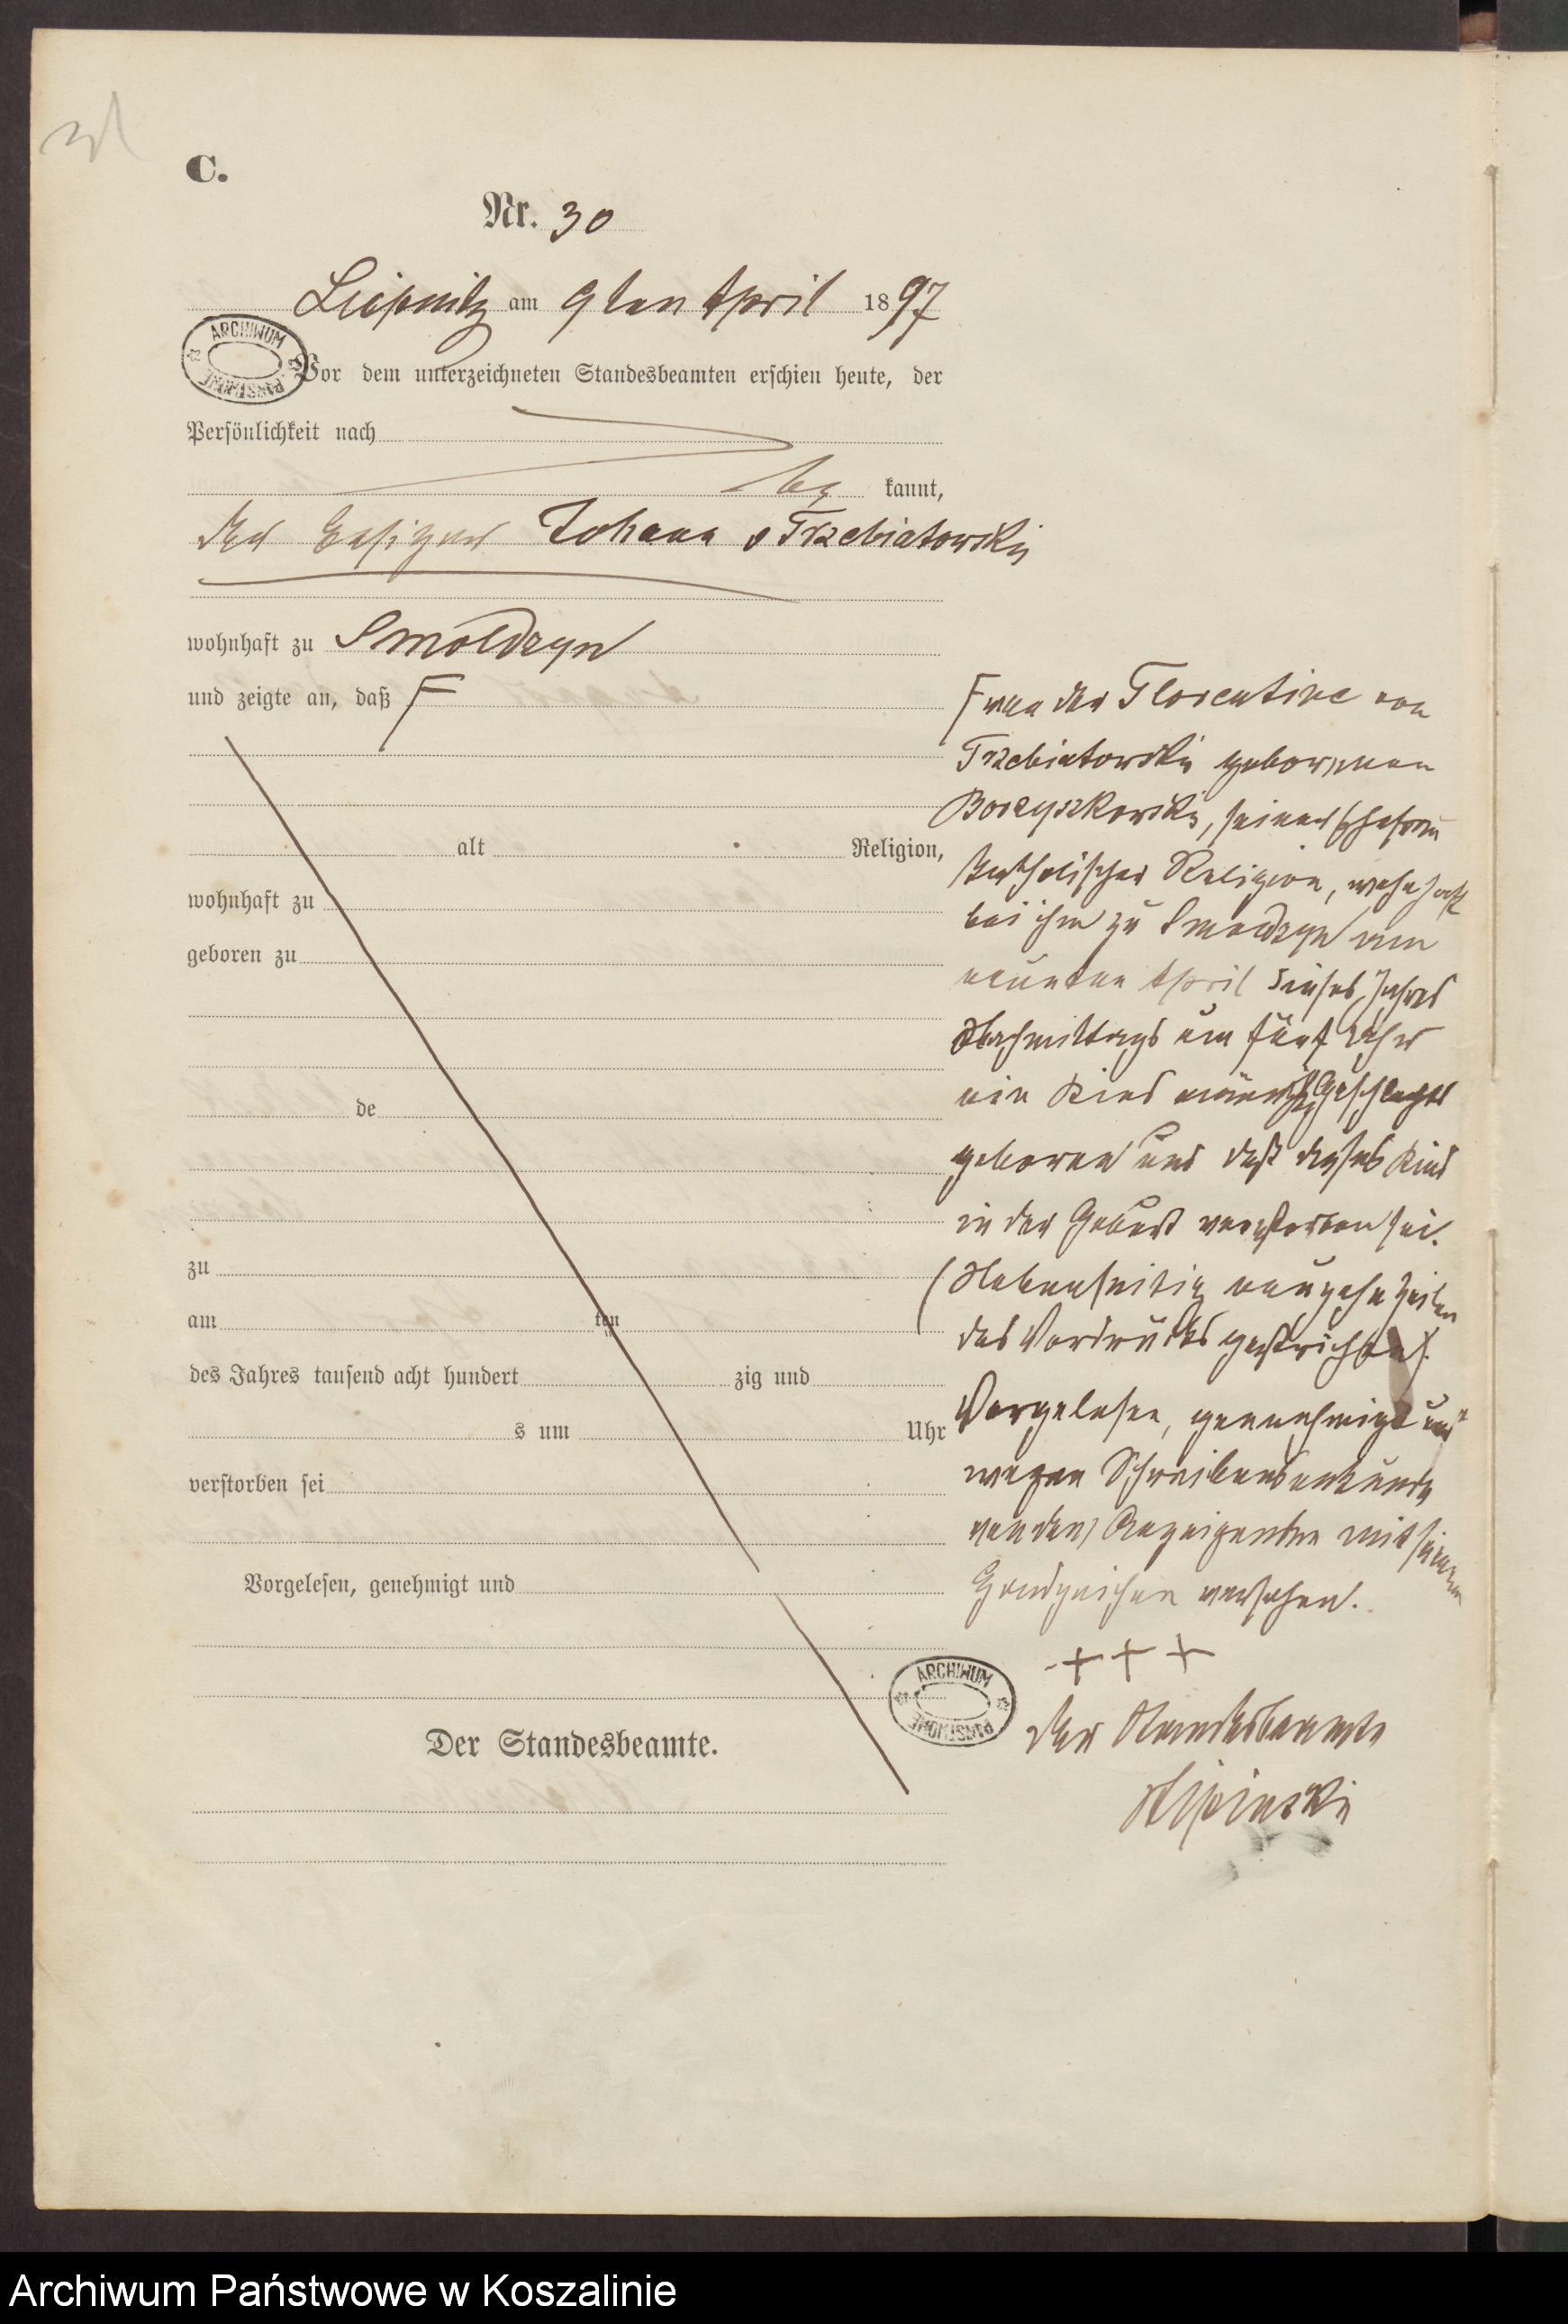 C.
Nr. 30
Liepnitz am 9ten April 1897
ARCHIWUM PAŃSTWOWE
Vor dem unterzeichneten Standesbeamten erschien heute, der
Persönlichkeit nach
be kannt,
der Besitzer Johann v Trzebiatowski
wohnhaft zu Smoldzyn
und zeigte an, daß F
alt Religion,
wohnhaft zu
geboren zu
de
zu
am ten
des Jahres tausend acht hundert zig und
s um Uhr
verstorben sei
Vorgelesen, genehmigt und
Der Standesbeamte.
F von der Florentine von
Trzebiatowski geborenen
Borzyszkowski, seiner Ehefrau
katholischer Religion, wohnhaft
bei ihm zu Smoldzyn am
neunten April dieses Jahres
Nachmittags um fünf Uhr
ein Kind männlichen Geschlechts
geboren und daß dieses Kind
in der Geburt verstorben sei.
(Nebenseitig neunzehn Zeilen
des Vordrucks gestrichen).
Vorgelesen, genehmigt und
wegen Schreibensunkunde
von dem Anzeigenden mit seinem
Handzeichen versehen.
+++
ARCHIWUM PAŃSTWOWE
Der Standesbeamte
Archiwum Państwowe w Koszalinie